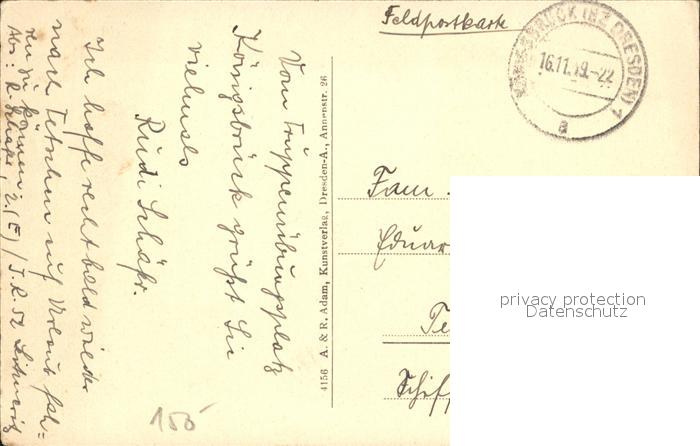 Feldpostkarte
KÖNIGSBRÜCK (BZ DRESDEN) 1
16.11.39.-22
a
Vom Truppenübungsplatz
Königsbrück grüßt Sie
vielmals
Rudi Schäfer.
Ich hoffe recht bald wieder
nach Tetschen auf Urlaub fah=
ren zu können
Abs: R. Schäfer, 2.(E) / J.R. 52
4156 A. & R. Adam, Kunstverlag, Dresden-A., Annenstr. 26
Fam.
Eduar
Te
Schiff
privacy protection
Datenschutz
155